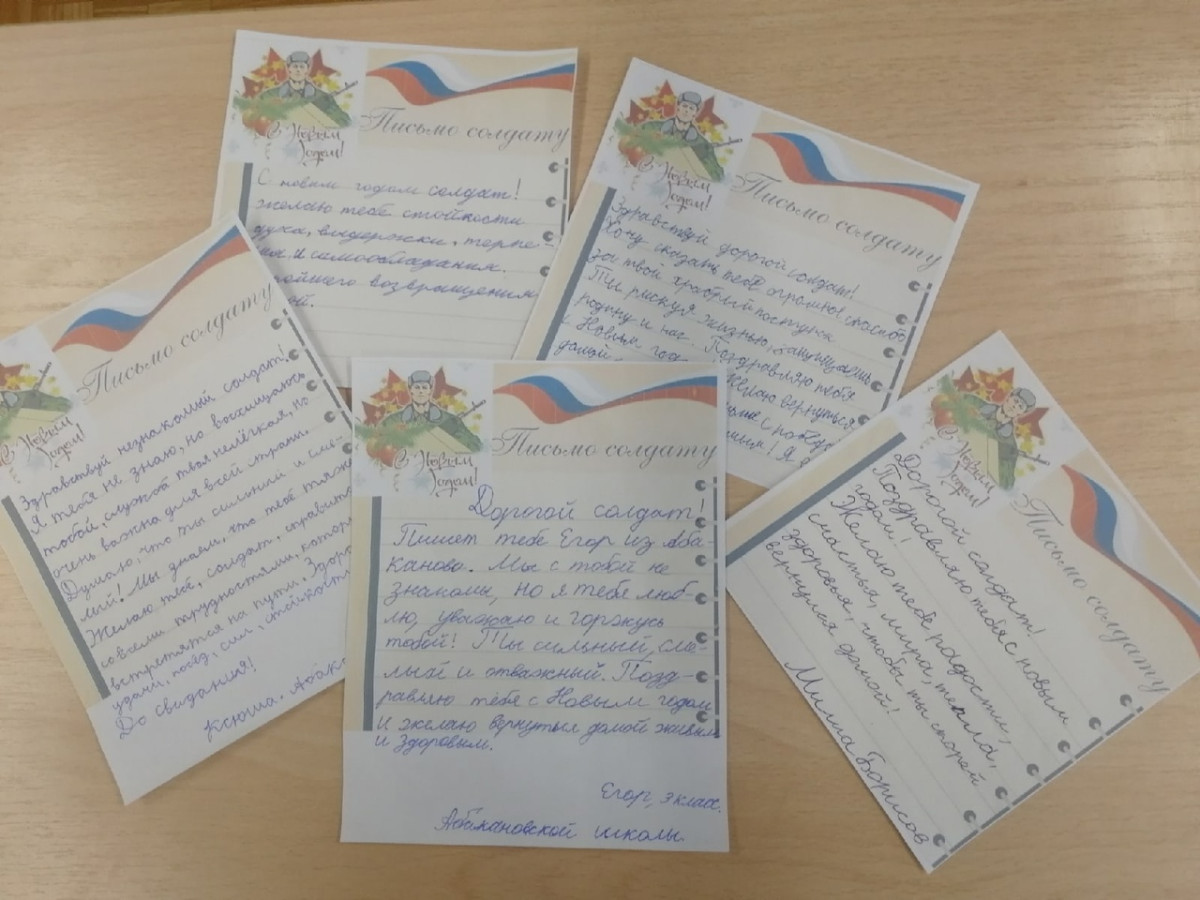 С Новым
Годом!
Письмо солдату
С новым годом солдат!
желаю тебе стойкости
духа, выдержки, терпе-
и самообладания.
возвращения
С Новым
Годом!
Письмо солдату
Здравствуй дорогой солдат!
Хочу сказать тебе огромное спасибо
за твой храбрый поступок
Ты рискуя жизнью защищаешь
родину и нас. Поздравляю тебя
с Новым год
домой
Желаю вернуться
с побед
Я
Письмо солдату
С Новым
Годом!
Здравствуй незнакомый солдат!
Я тебя не знаю, но восхищаюсь
тобой, служба твоя нелёгкая, но
очень важна для всей страны.
Думаю, что ты сильный и сме-
лый! Мы знаем, что тебе тяжел
Желаю тебе, солдат, справить
со всеми трудностями, котор
встретятся на пути. Здоро
удачи, побед, сил, стойкост
До свидания!
Ксюша. Абак
С Новым
Годом!
Письмо солдату
Дорогой солдат!
Пишет тебе Егор из Аба-
каново. Мы с тобой не
знакомы, но я тебя люб-
лю, уважаю и горжусь
тобой! Ты сильный, сме-
лый и отважный. Позд-
равляю тебя с Новым годом
и желаю вернуться домой живым
и здоровым.
Егор, 3 класс.
Абакановской школы
С Новым
Годом!
Письмо солдату
Дорогой солдат!
Поздравляю тебя с новым
годом!
Желаю тебе радости,
счастья, мира, тепла,
здоровья, чтобы ты скорей
вернулся домой!
Миша Борисов